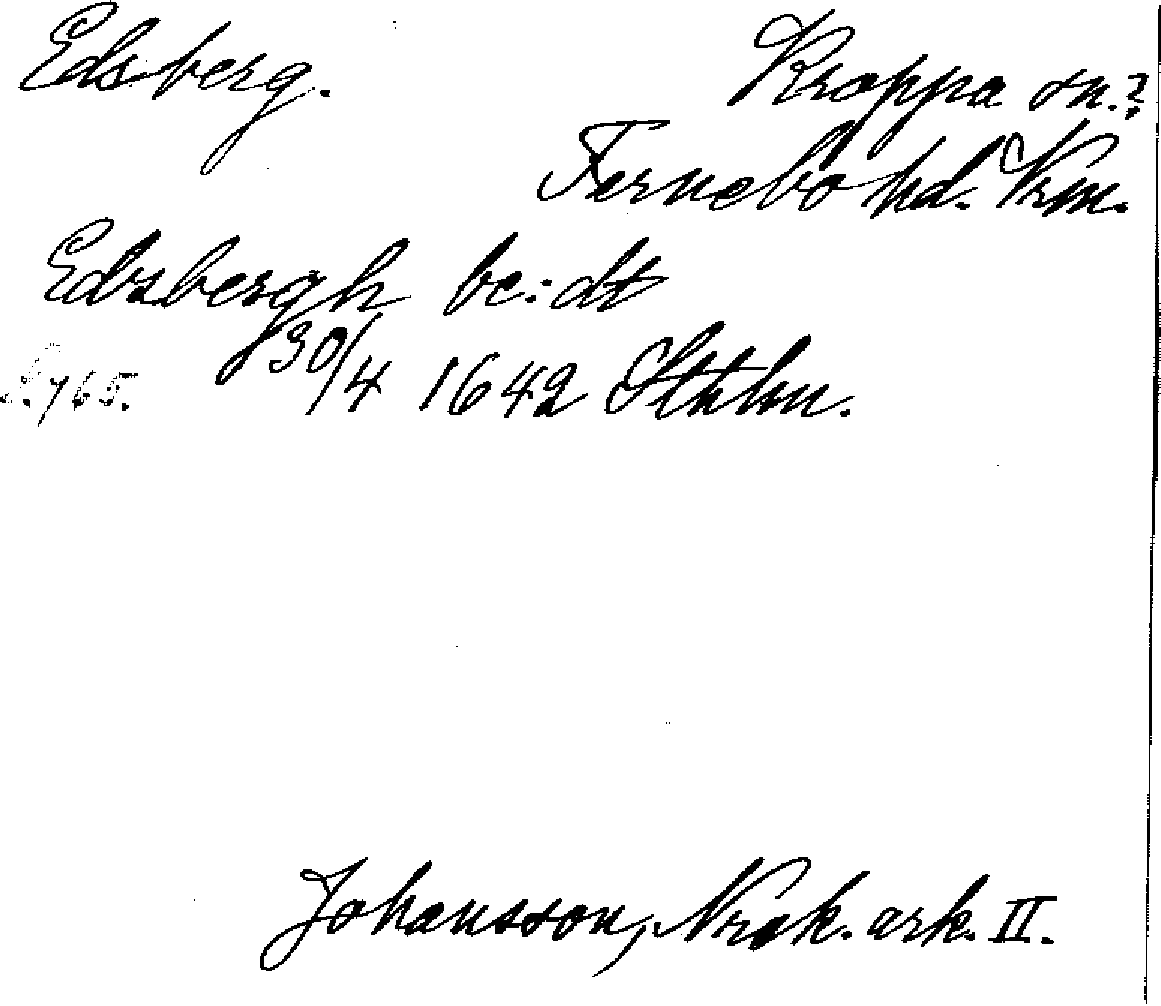 Edsberg.
Kroppa sn.?
Fernebo hd. Vrm.
Edzbergh be:dt
30/4 1642 Sthlm.
S. 765.
Johansson, Nrsk. ark. II.